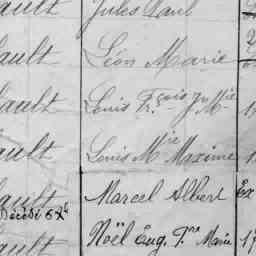 ault Jules Paul
ault Léon Marie
ault Louis Fçois J. Mie
ault Louis Mie Maxime
ault Marcel Albert Ex
Décédé
ault Noël Eug. Marie 17